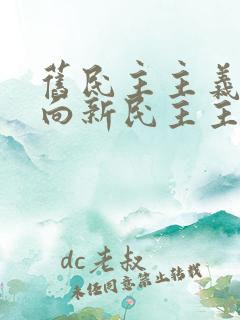 舊民主主義
向新民主主
dc老叔
未经同意禁止转载